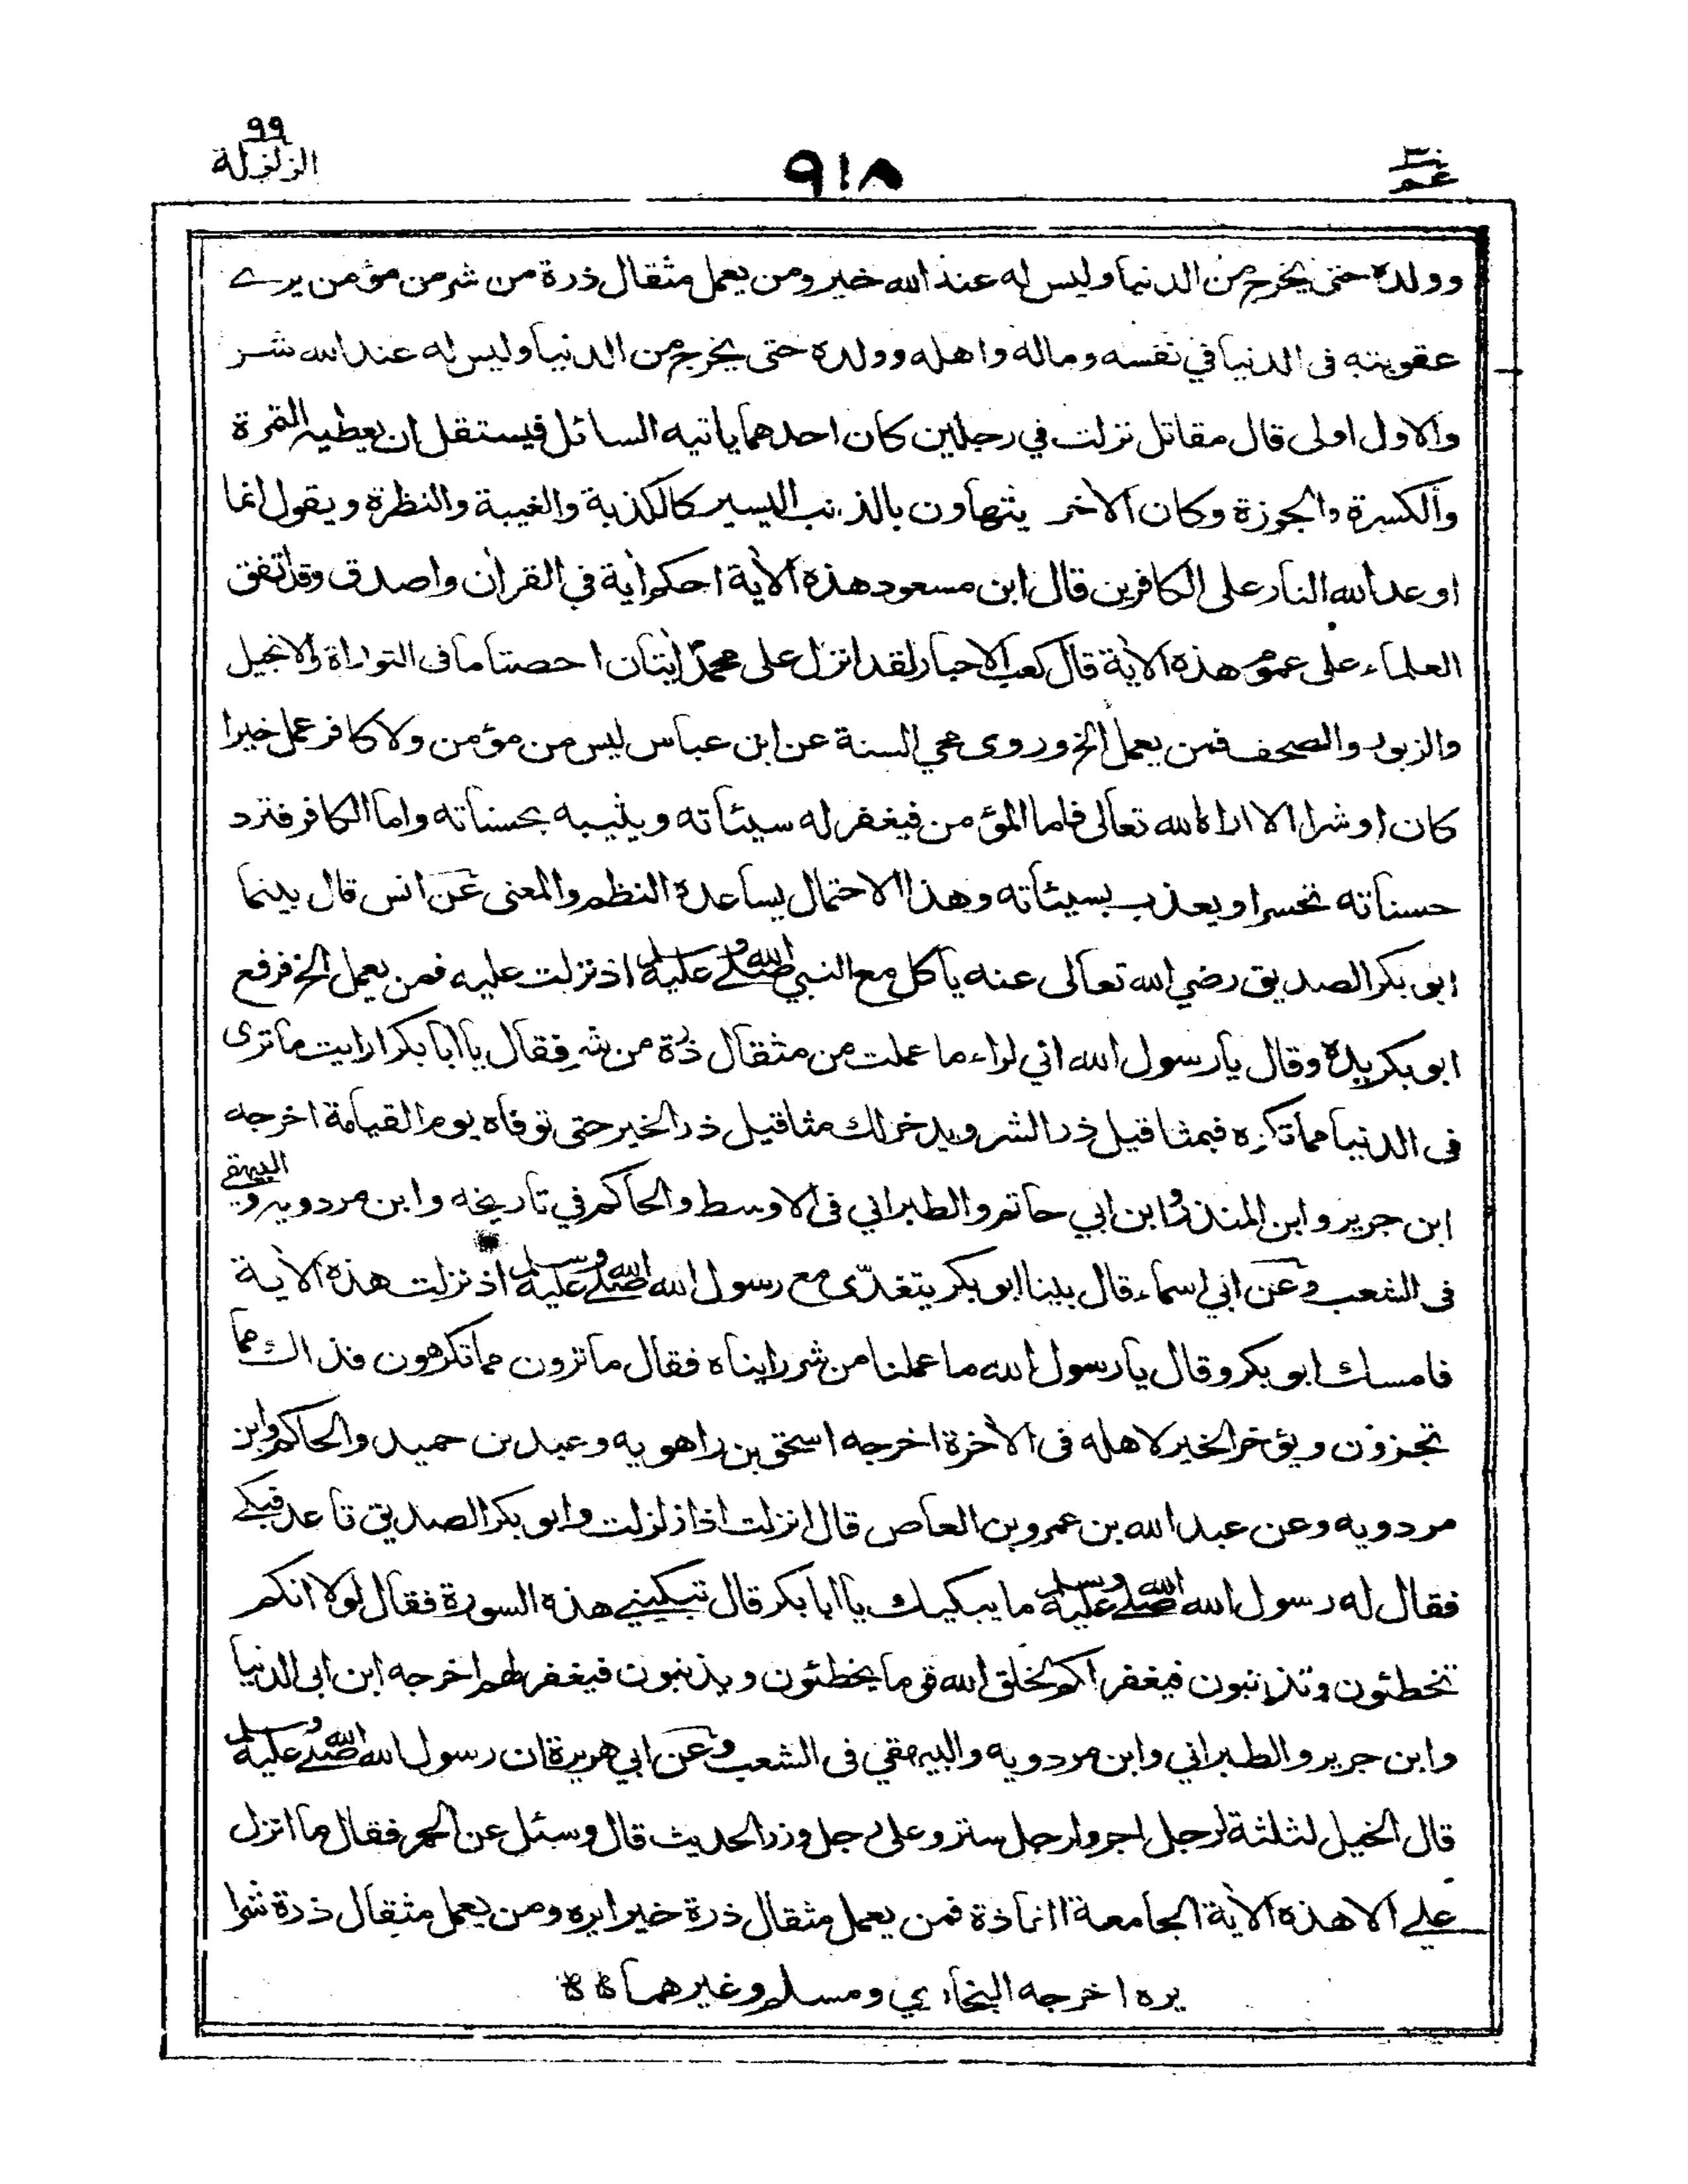 عم ٣٠
٩١٨
٩٩ الزلزلة
وولده حتى يخرج من الدنيا وليس له عند الله خير ومن يعمل مثقال ذرة من شر من مؤمن يرے
عقوبته فى الدنيا في نفسه وماله واهله وولده حتى يخرج من الدنيا وليس له عند الله شر
والاول اولى قال مقاتل نزلت في رجلين كان احدهما ياتيه السائل فيستقل ان يعطيه التمرة
والكسرة والجوزة وكان الأخر يتهاون بالذنب اليسير كالكذبة والغيبة والنظرة ويقول انما
اوعد الله النار على الكافرين قال ابن مسعود هذه الأية احكم أية في القرأن واصدق وقد اتفق
العلماء على عموم هذه الأية قال كعب الاحبار لقد انزل على محمد أيتان احصتا ما فى التوراة والانجيل
والزبور والصحف فمن يعمل الخ وروى محي السنة عن ابن عباس ليس من مؤمن ولا كافر عمل خيرا
كان او شرا الا اراه الله تعالى فاما المؤمن فيغفر له سيئاته ويثيبه بحسناته واما الكافر فترد
حسناته تحسرا ويعذب بسيئاته وهذا الاحتمال يساعده النظم والمعنى عن انس قال بينما
ابو بكر الصديق رضي الله تعالى عنه يأكل مع النبي صلى الله عليه وسلم اذ نزلت عليه فمن يعمل الخ فرفع
ابو بكر يده وقال يا رسول الله اني لراء ما عملت من مثقال ذرة من شر فقال يا أبا بكر ارايت ما ترى
فى الدنيا مما تكره فبمثاقيل ذر الشر ويدخر لك مثاقيل ذر الخير حتى توفاه يوم القيامة اخرجه
ابن جرير وابن المنذر وابن ابي حاتم والطبراني فى الاوسط والحاكم في تاريخه وابن مردويه والبيهقي
فى الشعب وعن ابي اسماء قال بينا ابو بكر يتغدّى مع رسول الله صلى الله عليه وسلم اذ نزلت هذه الأية
فامسك ابو بكر وقال يا رسول الله ما عملنا من شر رايناه فقال ما ترون مما تكرهون فذاك مما
تجزون ويؤخر الخير لاهله فى الأخرة اخرجه اسحق بن راهويه وعبد بن حميد والحاكم وابن
مردويه وعن عبد الله بن عمرو بن العاص قال انزلت اذا زلزلت وابو بكر الصديق قاعد فبكے
فقال له رسول الله صلى الله عليه وسلم ما يبكيك يا ابا بكر قال تبكيني هذه السورة فقال لولا انكم
تخطئون وتذنبون فيغفر لكم لخلق الله قوما يخطئون ويذنبون فيغفر لهم اخرجه ابن ابى الدنيا
وابن جرير والطبراني وابن مردويه والبيهقي فى الشعب وعن ابي هريرة ان رسول الله صلى الله عليه وسلم
قال الخيل لثلثة لرجل اجر ولرجل ستر وعلى رجل وزر الحديث قال وسئل عن الحمر فقال ما انزل
علے الا هذه الأية الجامعة الفاذة فمن يعمل مثقال ذرة خيرا يره ومن يعمل مثقال ذرة شرا
يره اخرجه البخاري ومسلم وغيرهما